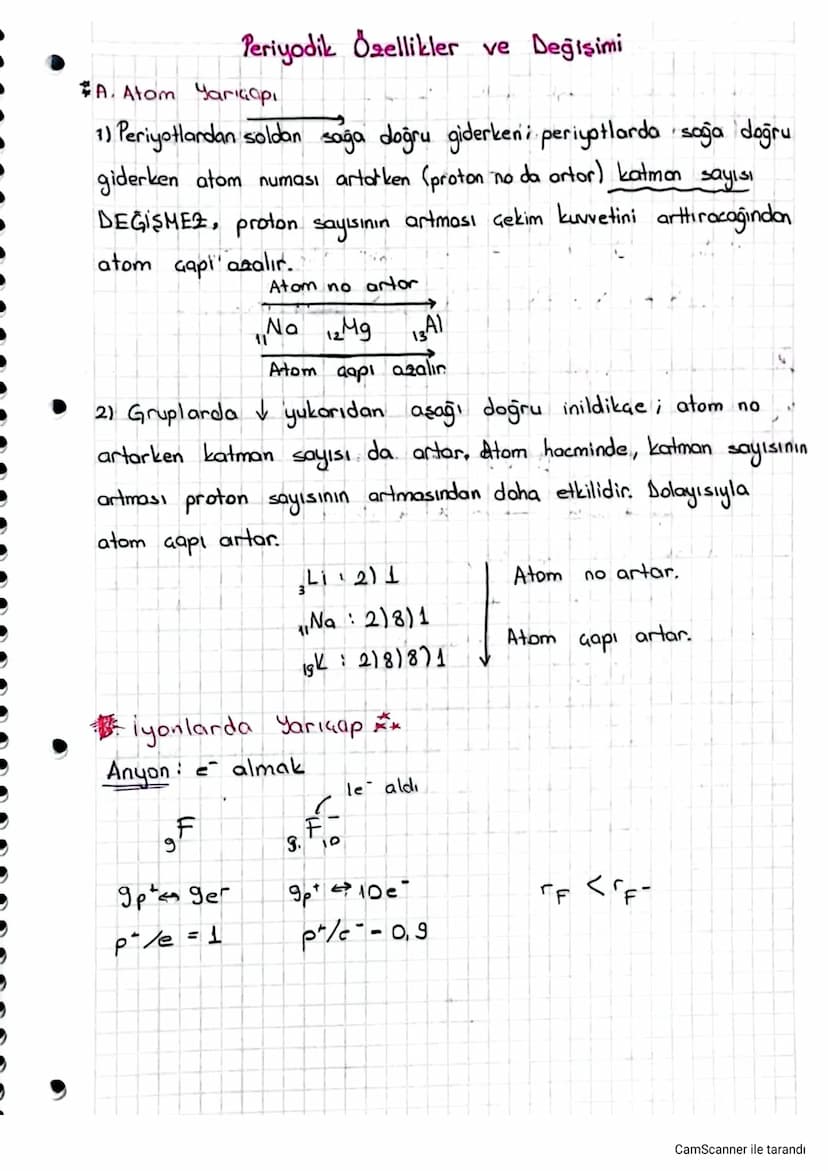 Periyodik Özellikler ve Değişimi
*A. Atom Yarıçapı
1) Periyotlardan soldan sağa doğru giderken; periyotlarda sağa doğru
giderken atom numası artarken (proton no da artar) katman sayısı
DEĞİŞMEZ, proton sayısının artması çekim kuvvetini arttıracağından
atom çapı azalır.
Atom no artar
₁₁Na ₁₂Mg ₁₃Al
Atom çapı azalır
2) Gruplarda ↓ yukarıdan aşağı doğru inildikçe; atom no
artarken katman sayısı da artar. Atom hacminde, katman sayısının
artması proton sayısının artmasından daha etkilidir. Dolayısıyla
atom çapı artar.
₃Li : 2)1 Atom no artar.
₁₁Na : 2)8)1
Atom çapı artar.
₁₉K : 2)8)8)1
İyonlarda Yarıçap
Anyon: e⁻ almak
1e⁻ aldı
₉F ₉F₁₀⁻
9p⁺↔ 9e⁻ 9p⁺ ↔ 10e⁻ rF < rF⁻
p⁺/e = 1 p⁺/e⁻ = 0,9
CamScanner ile tarandı